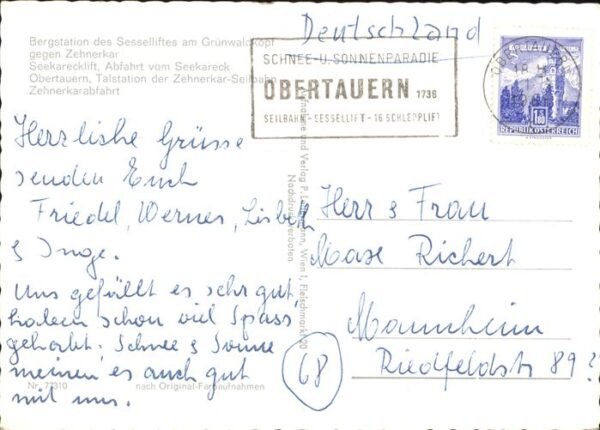 Bergstation des Sesselliftes am Grünwaldkopf
gegen Zehnerkar
Seekarecklift, Abfahrt vom Seekareck
Obertauern, Talstation der Zehnerkar-Seilbahn
Zehnerkarabfahrt
Deutschland
SCHNEE-U.SONNENPARADIE
OBERTAUERN 1736
SEILBAHN-SESSELLIFT-16 SCHLEPPLIFT
OBERTAUERN
1.80
REPUBLIK ÖSTERREICH
Herzliche Grüsse
senden Euch
Friedel, Werner, Lisbeth
& Inge.
Uns gefällt es sehr gut,
haben schon viel Spass
gehabt. Schnee & Sonne
meinen es auch gut
mit uns.
Nr. 77310
nach Original-Farbaufnahmen
Aufnahme und Verlag P. Wien 1, Fleischmarkt 20
Nachdruck verboten
Herr & Frau
Maxe Richert
68 Mannheim
Riedfeldstr 89?